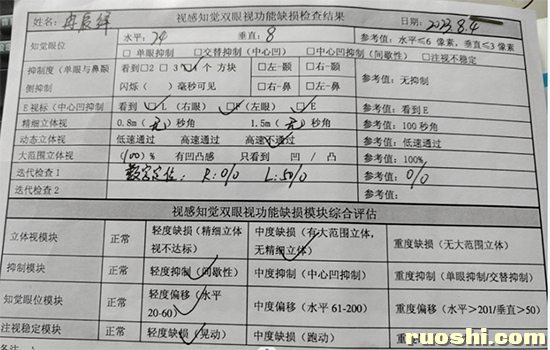 视感知觉双眼视功能缺损检查结果
姓名: 日期: 2023.8.4
知觉眼位 水平: 24 垂直: 8 参考值: 水平≤6 像素, 垂直≤3 像素
抑制度(单眼与鼻颞侧抑制 □单眼抑制 □交替抑制(中心凹) □中心凹抑制(间歇性) □注视不稳定
看到□2 □3 4 个 方块 □左-颞 □右-颞 参考值: 无抑制
闪烁( )毫秒可见 □左-鼻 □右-鼻
E视标(中心凹抑制 看到 □L (右眼) □F(左眼) □E 参考值: 看到 E
精细立体视 0.8m(无)秒角 1.5m(无)秒角 参考值: 100 秒角
动态立体视 低速通过 高速通过 高速不通过 参考值: 低速通过
大范围立体视 (100)% 有凹凸感 只看到 凹 / 凸 参考值: 100%,
迭代检查1 数字定位: R:0/0 L:50/0 参考值: 0/0
迭代检查2 参考值:
视感知觉双眼视功能缺损模块综合评估
立体视模块 正常 轻度缺损(精细立体视不达标) 中度缺损(有大范围立体, 无精细立体) 重度缺损(无大范围立体)
抑制模块 正常 轻度抑制(间歇性) 中度抑制(中心凹抑制) 重度抑制(单眼抑制/交替抑制)
知觉眼位模块 正常 轻度偏移(水平20-60) 中度偏移(水平 61-200) 重度偏移(水平>201/垂直>50)
注视稳定模块 正常 轻度缺损(晃动) 中度缺损(跑动)
ruoshi.com